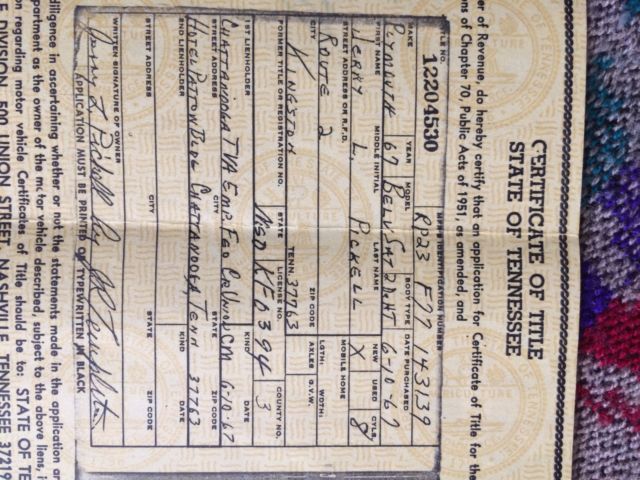 CERTIFICATE OF TITLE
STATE OF TENNESSEE
er of Revenue, do hereby certify that an application for Certificate of Title for the
ns of Chapter 70, Public Acts of 1951, as amended, and
TITLE NO. 12204530 MFR'S IDENTIFICATION NUMBER RP23 F77 143139
MAKE YEAR MODEL BODY TYPE DATE PURCHASED NEW USED CYLS.
PLYMOUTH 67 BELV SAT 2DR HT 6-10-67 X 8
FIRST NAME MIDDLE INITIAL LAST NAME MOBILE HOME
JERRY L. PICKELL
STREET ADDRESS OR R.F.D. LGTH: WDTH:
ROUTE 2
CITY ZIP CODE AXLES G.V.W.
KINGSTON TENN. 37763
FORMER TITLE OR REGISTRATION NO. STATE LICENSE NO. COUNTY NO.
KFD394 3
1ST LIENHOLDER KIND DATE
CHATTANOOGA TVA EMP. FED CR UNION CM 6-10-67
STREET ADDRESS CITY STATE ZIP CODE
HOTEL PATTON BLDG CHATTANOOGA TENN 37763
2ND LIENHOLDER KIND DATE
STREET ADDRESS CITY STATE ZIP CODE
Jerry L Pickell by
WRITTEN SIGNATURE OF OWNER
APPLICATION MUST BE PRINTED OR TYPEWRITTEN IN BLACK
diligence in ascertaining whether or not the statements made in the application ar
partment as the owner of the motor vehicle described, subject to the above liens, i
on regarding motor vehicle Certificates of Title should be to: STATE OF TE
E DIVISION, 500 UNION STREET, NASHVILLE, TENNESSEE 37219